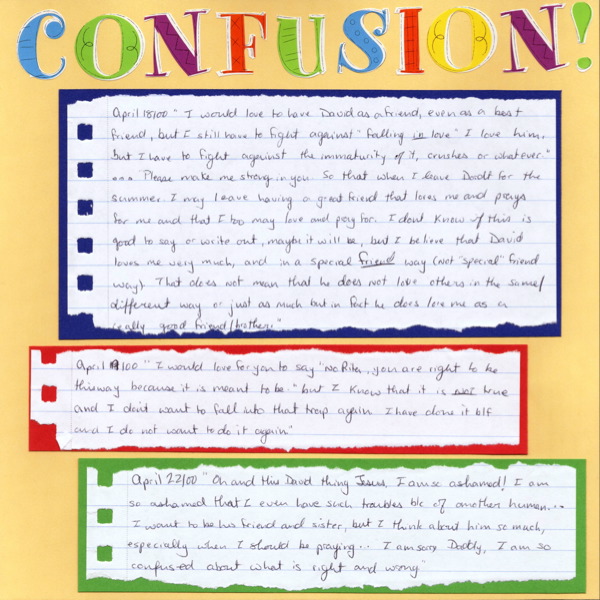 CONFUSION!
April 18/00 " I would love to have David as a friend, even as a best
friend, but I still have to fight against "falling in love" I love him,
but I have to fight against the immaturity of it, crushes or whatever."
... Please make me strong in you. So that when I leave Dordt for the
summer I may leave having a great friend that loves me and prays
for me and that I too may love and pray for. I dont know if this is
good to say or write out, maybe it will be, but I believe that David
loves me very much, and in a special friend way (not "special" friend
way). That does not man that he does not love others in the same/
different way or just as much but in fact he does love me as a
really good friend/brother."
April 19/00 " I would love for you to say "No Rita, you are right to be
this way because it is meant to be." but I know that it is not true
and I don't want to fall into that trap again. I have done it b/f
and I do not want to do it again."
April 22/00 " Oh and this David thing Jesus, I am so ashamed! I am
so ashamed that I even have such troubles b/c of another human...
I want to be his friend and sister, but I think about him so much,
especially when I should be praying... I am sorry Daddy, I am so
confused about what is right and wrong"